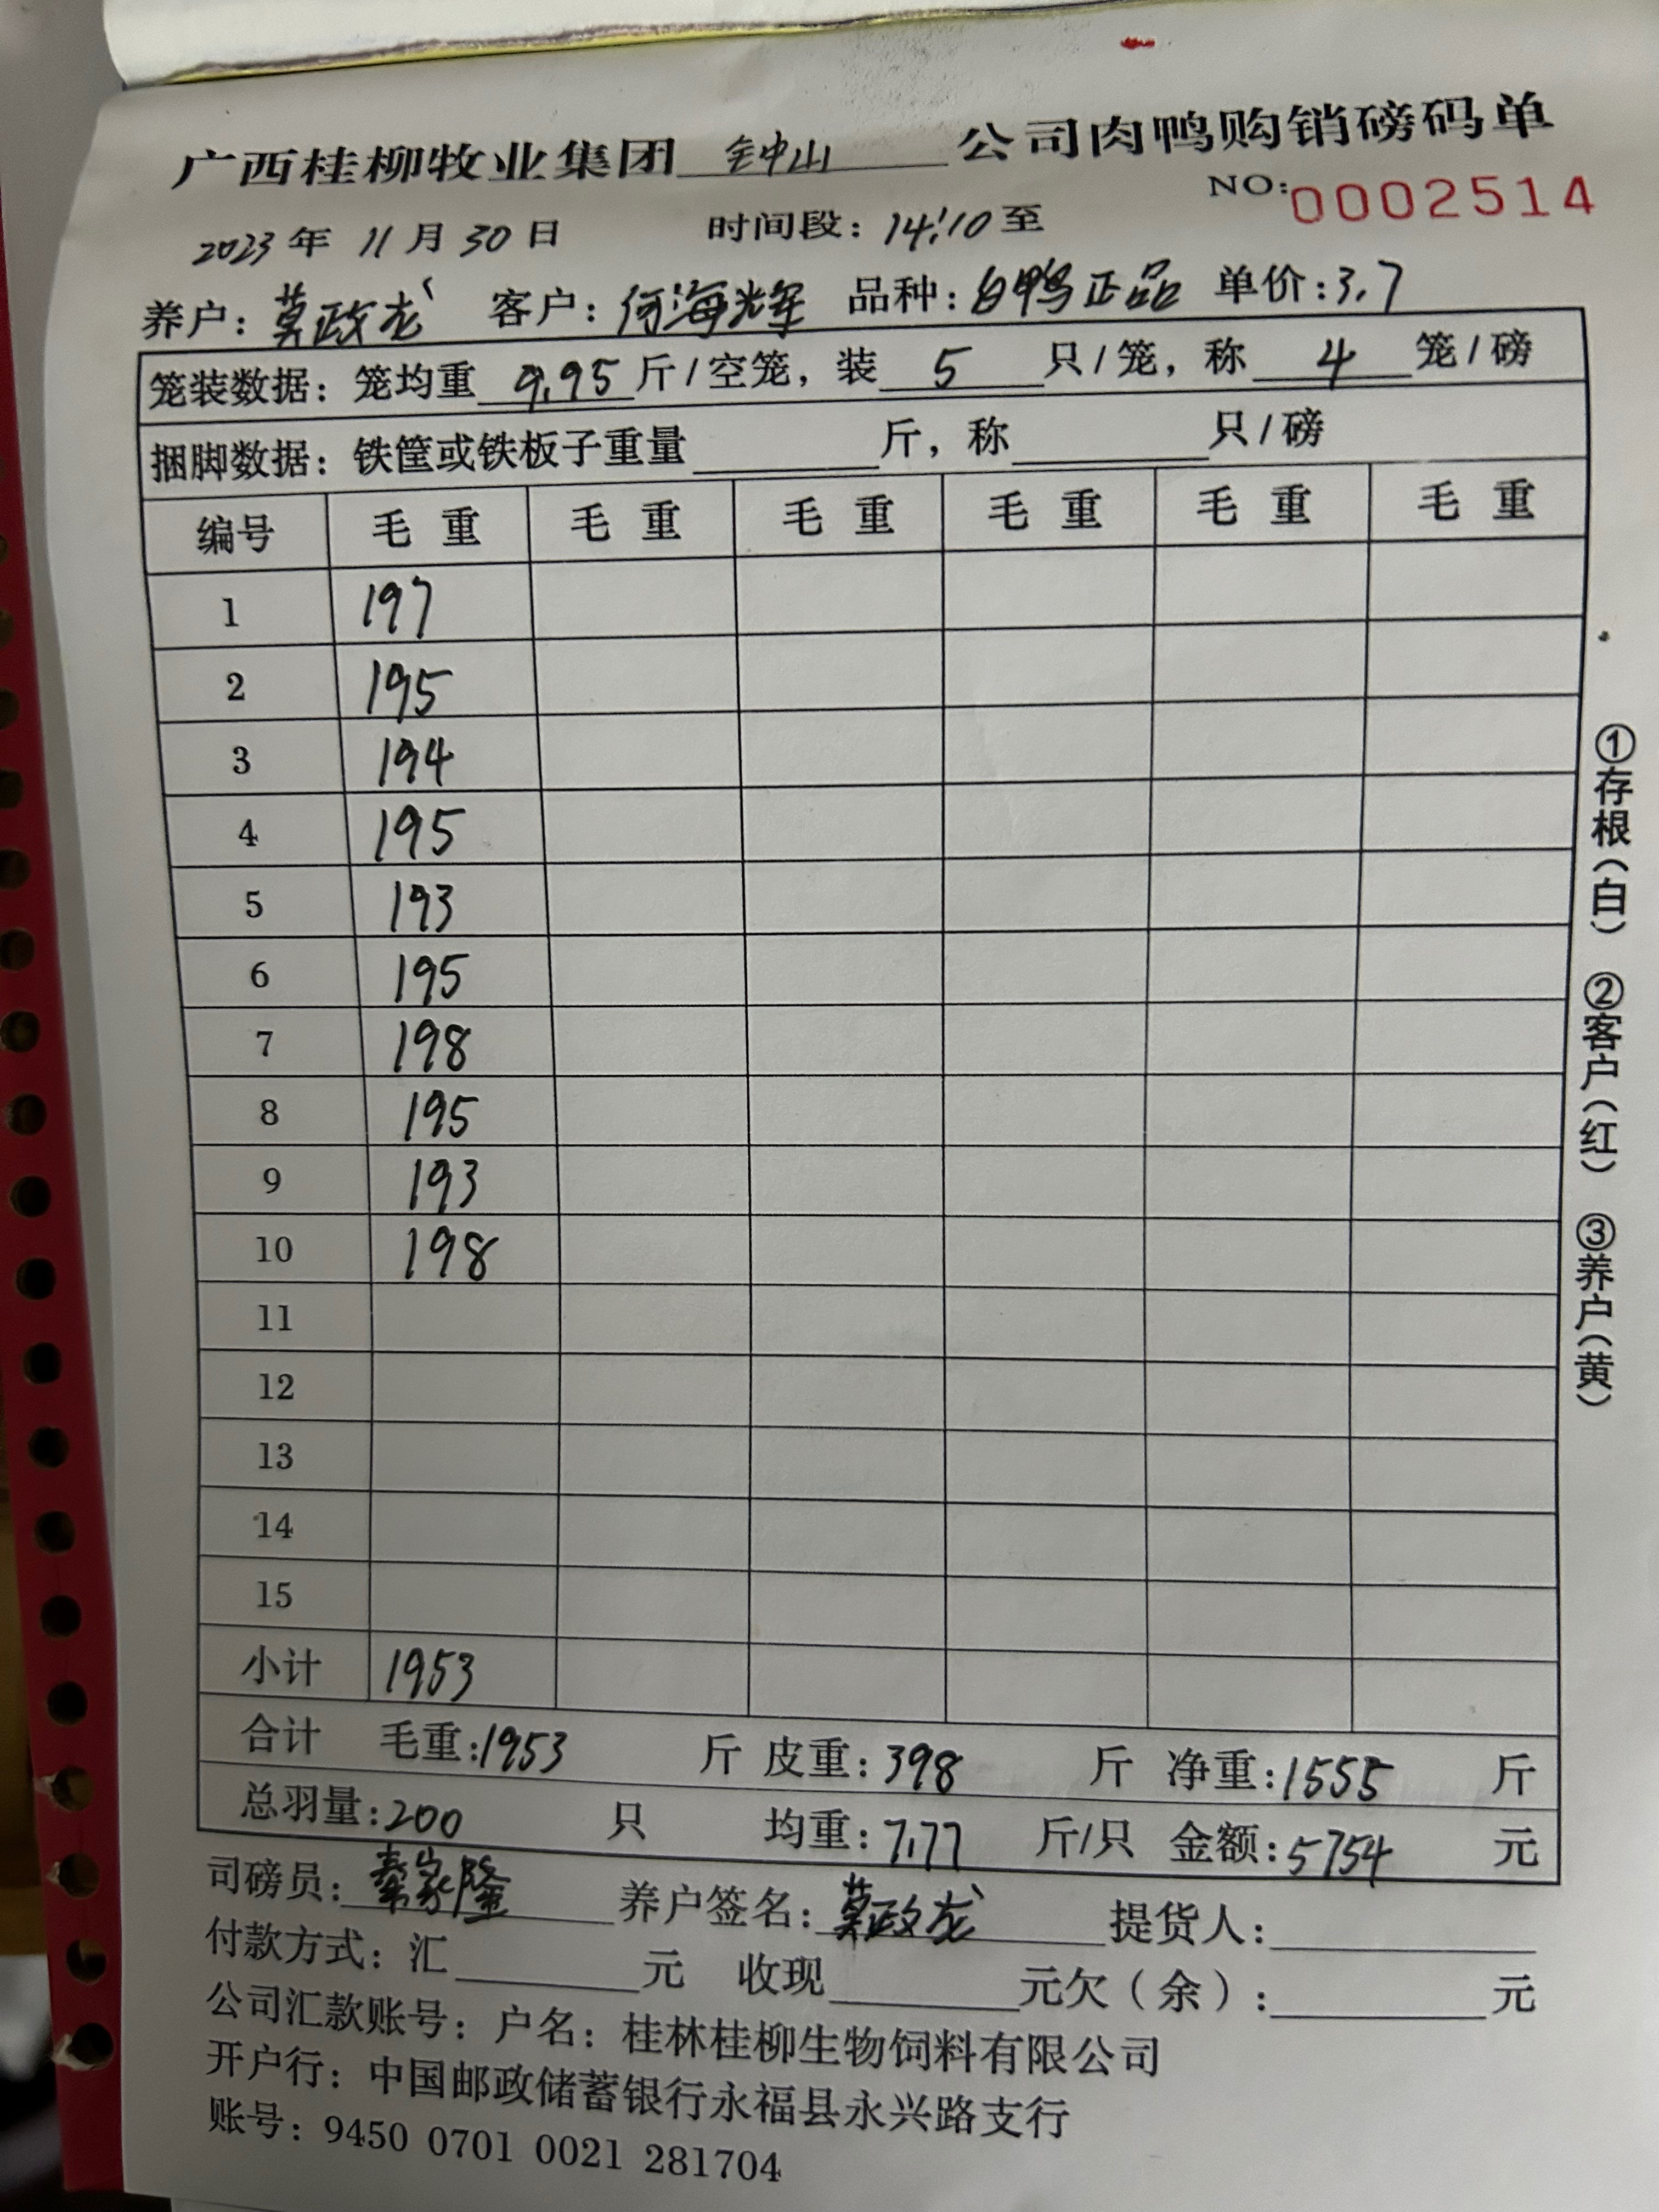 广西桂柳牧业集团 钟山 公司肉鸭购销磅码单
NO:0002514
2023年 11月30日 时间段：14:10至
养户：莫政龙 客户：何海辉 品种：白鸭正品 单价：3.7
笼装数据：笼均重 9.95 斤/空笼，装 5 只/笼，称 4 笼/磅
捆脚数据：铁筐或铁板子重量 斤，称 只/磅
编号 毛重 毛重 毛重 毛重 毛重 毛重
1 197
2 195
3 194
4 195
5 193
6 195
7 198
8 195
9 193
10 198
11
12
13
14
15
小计 1953
合计 毛重：1953 斤 皮重：398 斤 净重：1555 斤
总羽量：200 只 均重：7.77 斤/只 金额：5754 元
司磅员：秦家隆 养户签名：莫政龙 提货人：
付款方式：汇 元 收现 元欠（余）： 元
公司汇款账号：户名：桂林桂柳生物饲料有限公司
开户行：中国邮政储蓄银行永福县永兴路支行
账号：9450 0701 0021 281704
①存根（白） ②客户（红） ③养户（黄）